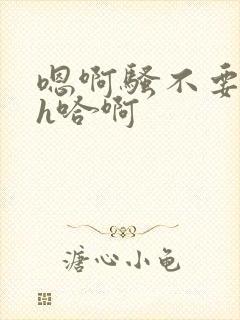 嗯啊骚不要
h哈啊
溏心小龟